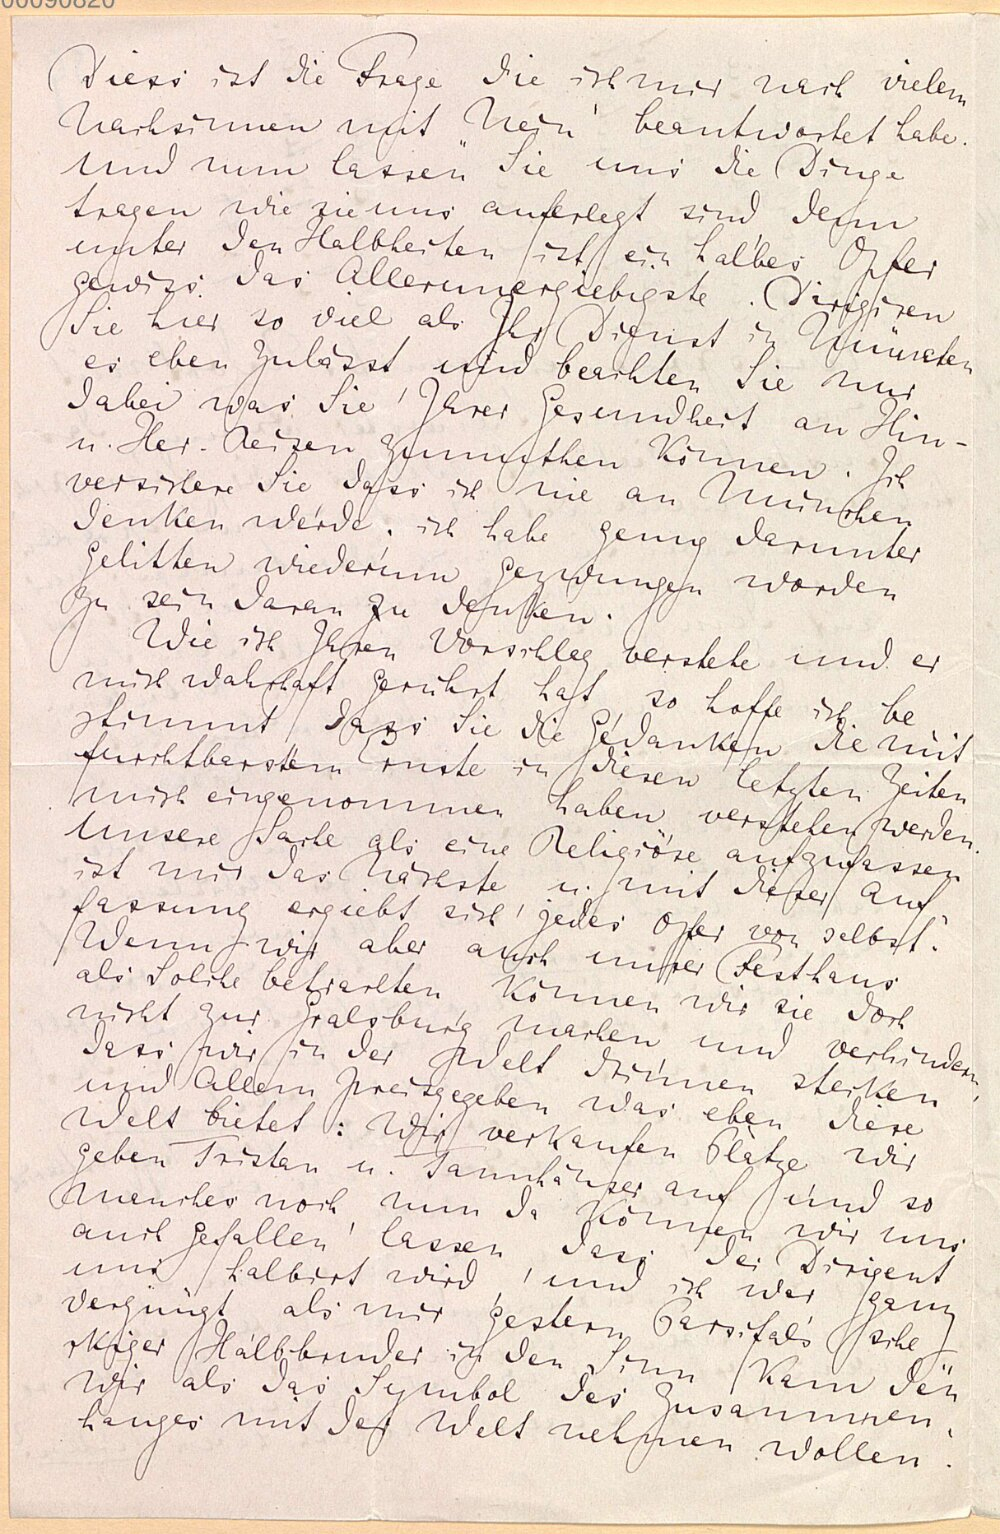 00090820
Diess ist die Frage die ich mir nach vielem
Nachsinnen mit "Nein" beantwortet habe.
Und nun lassen Sie uns die Dinge
tragen wie sie uns auferlegt sind denn
unter den Halbheiten ist ein halbes Opfer
gewiss das Allerunergiebigste. Dirigiren
Sie hier so viel als Ihr Dienst in München
es eben zulässt und beachten Sie nur
dabei was Sie Ihrer Gesundheit an Hin-
u. Her-Reisen zumuthen können. Ich
versichere Sie dass ich nie an München
denken werde, ich habe genug darunter
gelitten wiederum gezwungen worden
zu sein daran zu denken.
Wie ich Ihren Vorschlag verstehe und er
mich wahrhaft gerührt hat so hoffe ich be
stimmt dass Sie die Gedanken die mit
furchtbarstem Ernste in diesen letzten Zeiten
mich eingenommen haben verstehen werden.
Unsere Sache als eine Religiöse aufzufassen
ist mir das Nächste u. mit dieser Auf
fassung ergiebt sich jedes Opfer von selbst.
Wenn wir aber auch unser Festhaus
als Solche betrachten können wir sie doch
nicht zur Gralsburg machen und verhindern,
dass wir in der Welt drinnen stecken
und Allem preisgegeben was eben diese
Welt bietet: Wir verkaufen Plätze wir
geben Tristan u. Tannhäuser auf und so
manches noch nun da können wir uns
auch gefallen lassen dass der Dirigent
uns halbirt wird, und ich war ganz
vergnügt als mir gestern Parsifal's sche
ckiger Halbbruder in den Sinn kam den
wir als das Symbol des Zusammen
hanges mit der Welt nehmen wollen.